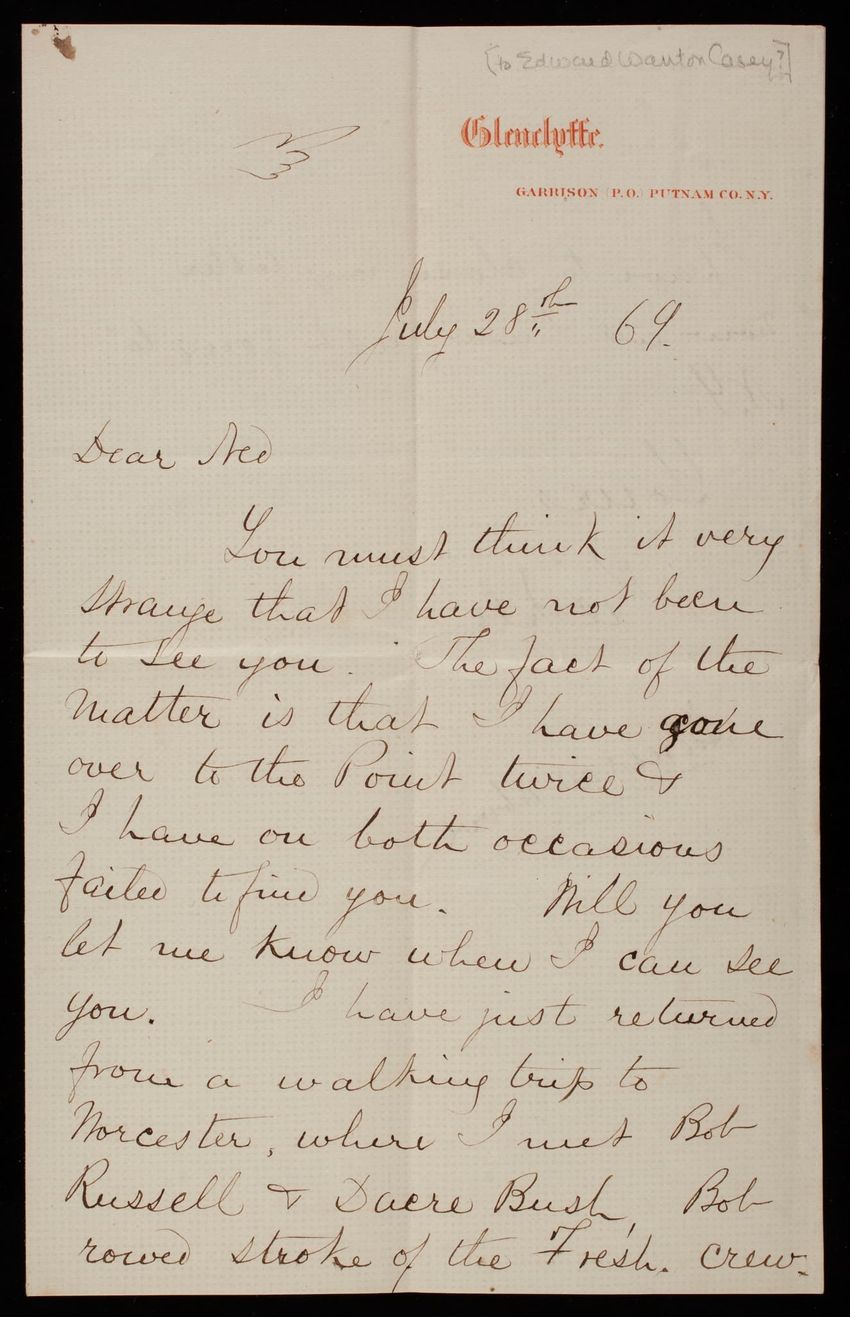 [to Edward Wanton Casey?]
Glenclyffe.
GARRISON (P.O.) PUTNAM CO. N.Y.
July 28th 69.
Dear Ned
You must think it very
strange that I have not been
to see you. The fact of the
matter is that I have gone
over to the Point twice &
I have on both occasions
failed to find you. Will you
let me know when I can see
you. I have just returned
from a walking trip to
Worcester, where I met Bob
Russell & Dacre Bush, Bob
rowed stroke of the Fresh. crew.